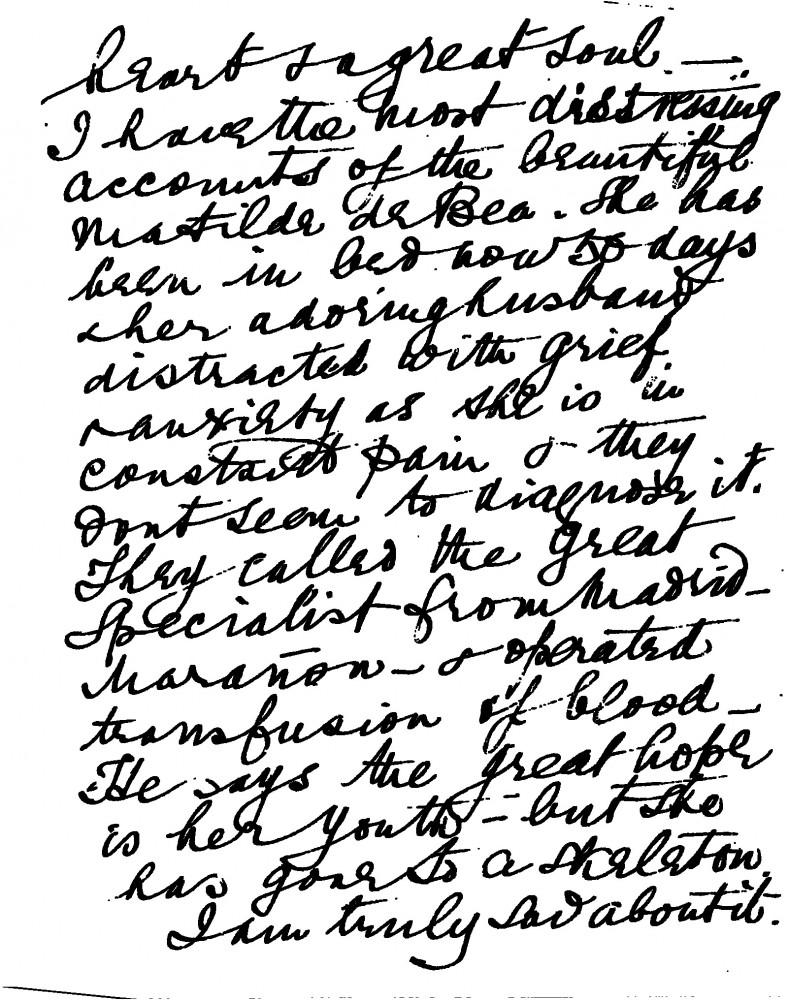 heart & a great soul —.
I have the most distressing
accounts of the beautiful
Matilde de Bea. She has
been in bed now 50 days
& her adoring husband
distracted with grief
& anxiety as she is in
constant pain & they
dont seem to diagnose it.
They called the great
Specialist from Madrid —
Marañon — & operated
transfusion of blood —
He says the great hope
is her youth — but she
has gone to a skeleton.
I am truly sad about it.